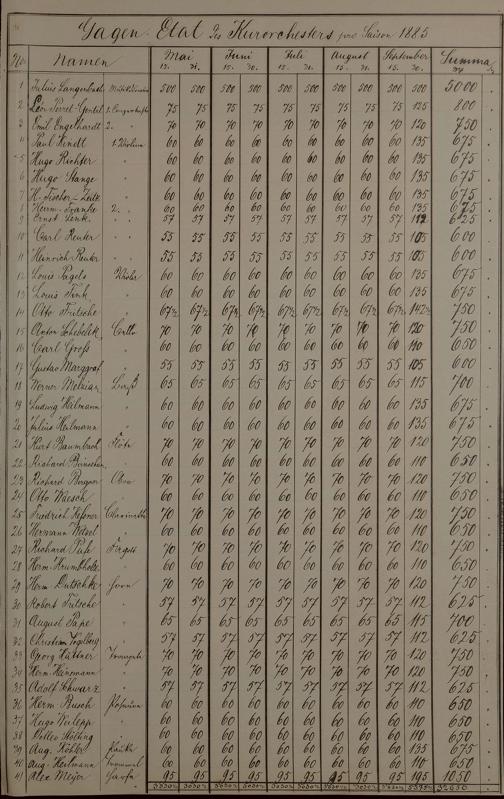 Gagen-Etat des Kurorchesters pro Saison 1885
No. Namen Mai Juni Juli August September Summa
15. 31. 15. 30. 15. 31. 15. 31. 15. 30.
1 Julius Langenbach 500 500 500 500 500 500 500 500 500 500 5000
2 Perret-Gentil 75 75 75 75 75 75 75 75 75 125 800
3 Emil Engelhardt 2. 70 70 70 70 70 70 70 70 70 120 750
4 Paul 1. Violine 60 60 60 60 60 60 60 60 60 135 675
5 Hugo Richter 60 60 60 60 60 60 60 60 60 135 675
6 Hugo Stange 60 60 60 60 60 60 60 60 60 135 675
7 H. Fischer-Zeitz 60 60 60 60 60 60 60 60 60 135 675
8 Franke 2. 60 60 60 60 60 60 60 60 60 135 675
9 Ernst 57 57 57 57 57 57 57 57 57 112 625
10 Carl Reuter 55 55 55 55 55 55 55 55 55 105 600
11 Heinrich 55 55 55 55 55 55 55 55 55 105 600
12 Louis Pagels Viola 60 60 60 60 60 60 60 60 60 135 675
13 Louis Fink 60 60 60 60 60 60 60 60 60 135 675
14 Otto Fritsche 67½ 67½ 67½ 67½ 67½ 67½ 67½ 67½ 67½ 142½ 750
15 Anton Cello 70 70 70 70 70 70 70 70 70 120 750
16 Carl Grooß 60 60 60 60 60 60 60 60 60 110 650
17 Gustav Marggraf 55 55 55 55 55 55 55 55 55 105 600
18 Werner 65 65 65 65 65 65 65 65 65 115 700
19 Ludwig Heilmann 60 60 60 60 60 60 60 60 60 135 675
20 Julius Heilmann 60 60 60 60 60 60 60 60 60 135 675
21 Kurt Baumbach Flöte 70 70 70 70 70 70 70 70 70 120 750
22 Richard 60 60 60 60 60 60 60 60 60 110 650
23 Richard Berger Oboe 70 70 70 70 70 70 70 70 70 120 750
24 Otto Wäsch 60 60 60 60 60 60 60 60 60 110 650
25 Friedrich Clarinette 70 70 70 70 70 70 70 70 70 120 750
26 Hermann Wetzel 60 60 60 60 60 60 60 60 60 110 650
27 Richard Fagott 70 70 70 70 70 70 70 70 70 120 750
28 Herm. Krumbholz 60 60 60 60 60 60 60 60 60 110 650
29 Herm. Dutschke Horn 70 70 70 70 70 70 70 70 70 120 750
30 Robert Fritsche 57 57 57 57 57 57 57 57 57 112 625
31 August Pape 65 65 65 65 65 65 65 65 65 115 700
32 Christian Vogelberg 57 57 57 57 57 57 57 57 57 112 625
33 Georg Hüttner Trompete 70 70 70 70 70 70 70 70 70 120 750
34 Herm. Hünemann 70 70 70 70 70 70 70 70 70 120 750
35 Adolf Schwarz 57 57 57 57 57 57 57 57 57 112 625
36 Herm. Rusch Posaune 60 60 60 60 60 60 60 60 60 110 650
37 Hugo 60 60 60 60 60 60 60 60 60 110 650
38 Hölting 60 60 60 60 60 60 60 60 60 110 650
39 Aug. Köhler Pauke 60 60 60 60 60 60 60 60 60 135 675
40 Aug. Heilmann Trommel 60 60 60 60 60 60 60 60 60 110 650
41 Alex Meyer Harfe 95 95 95 95 95 95 95 95 95 195 1050